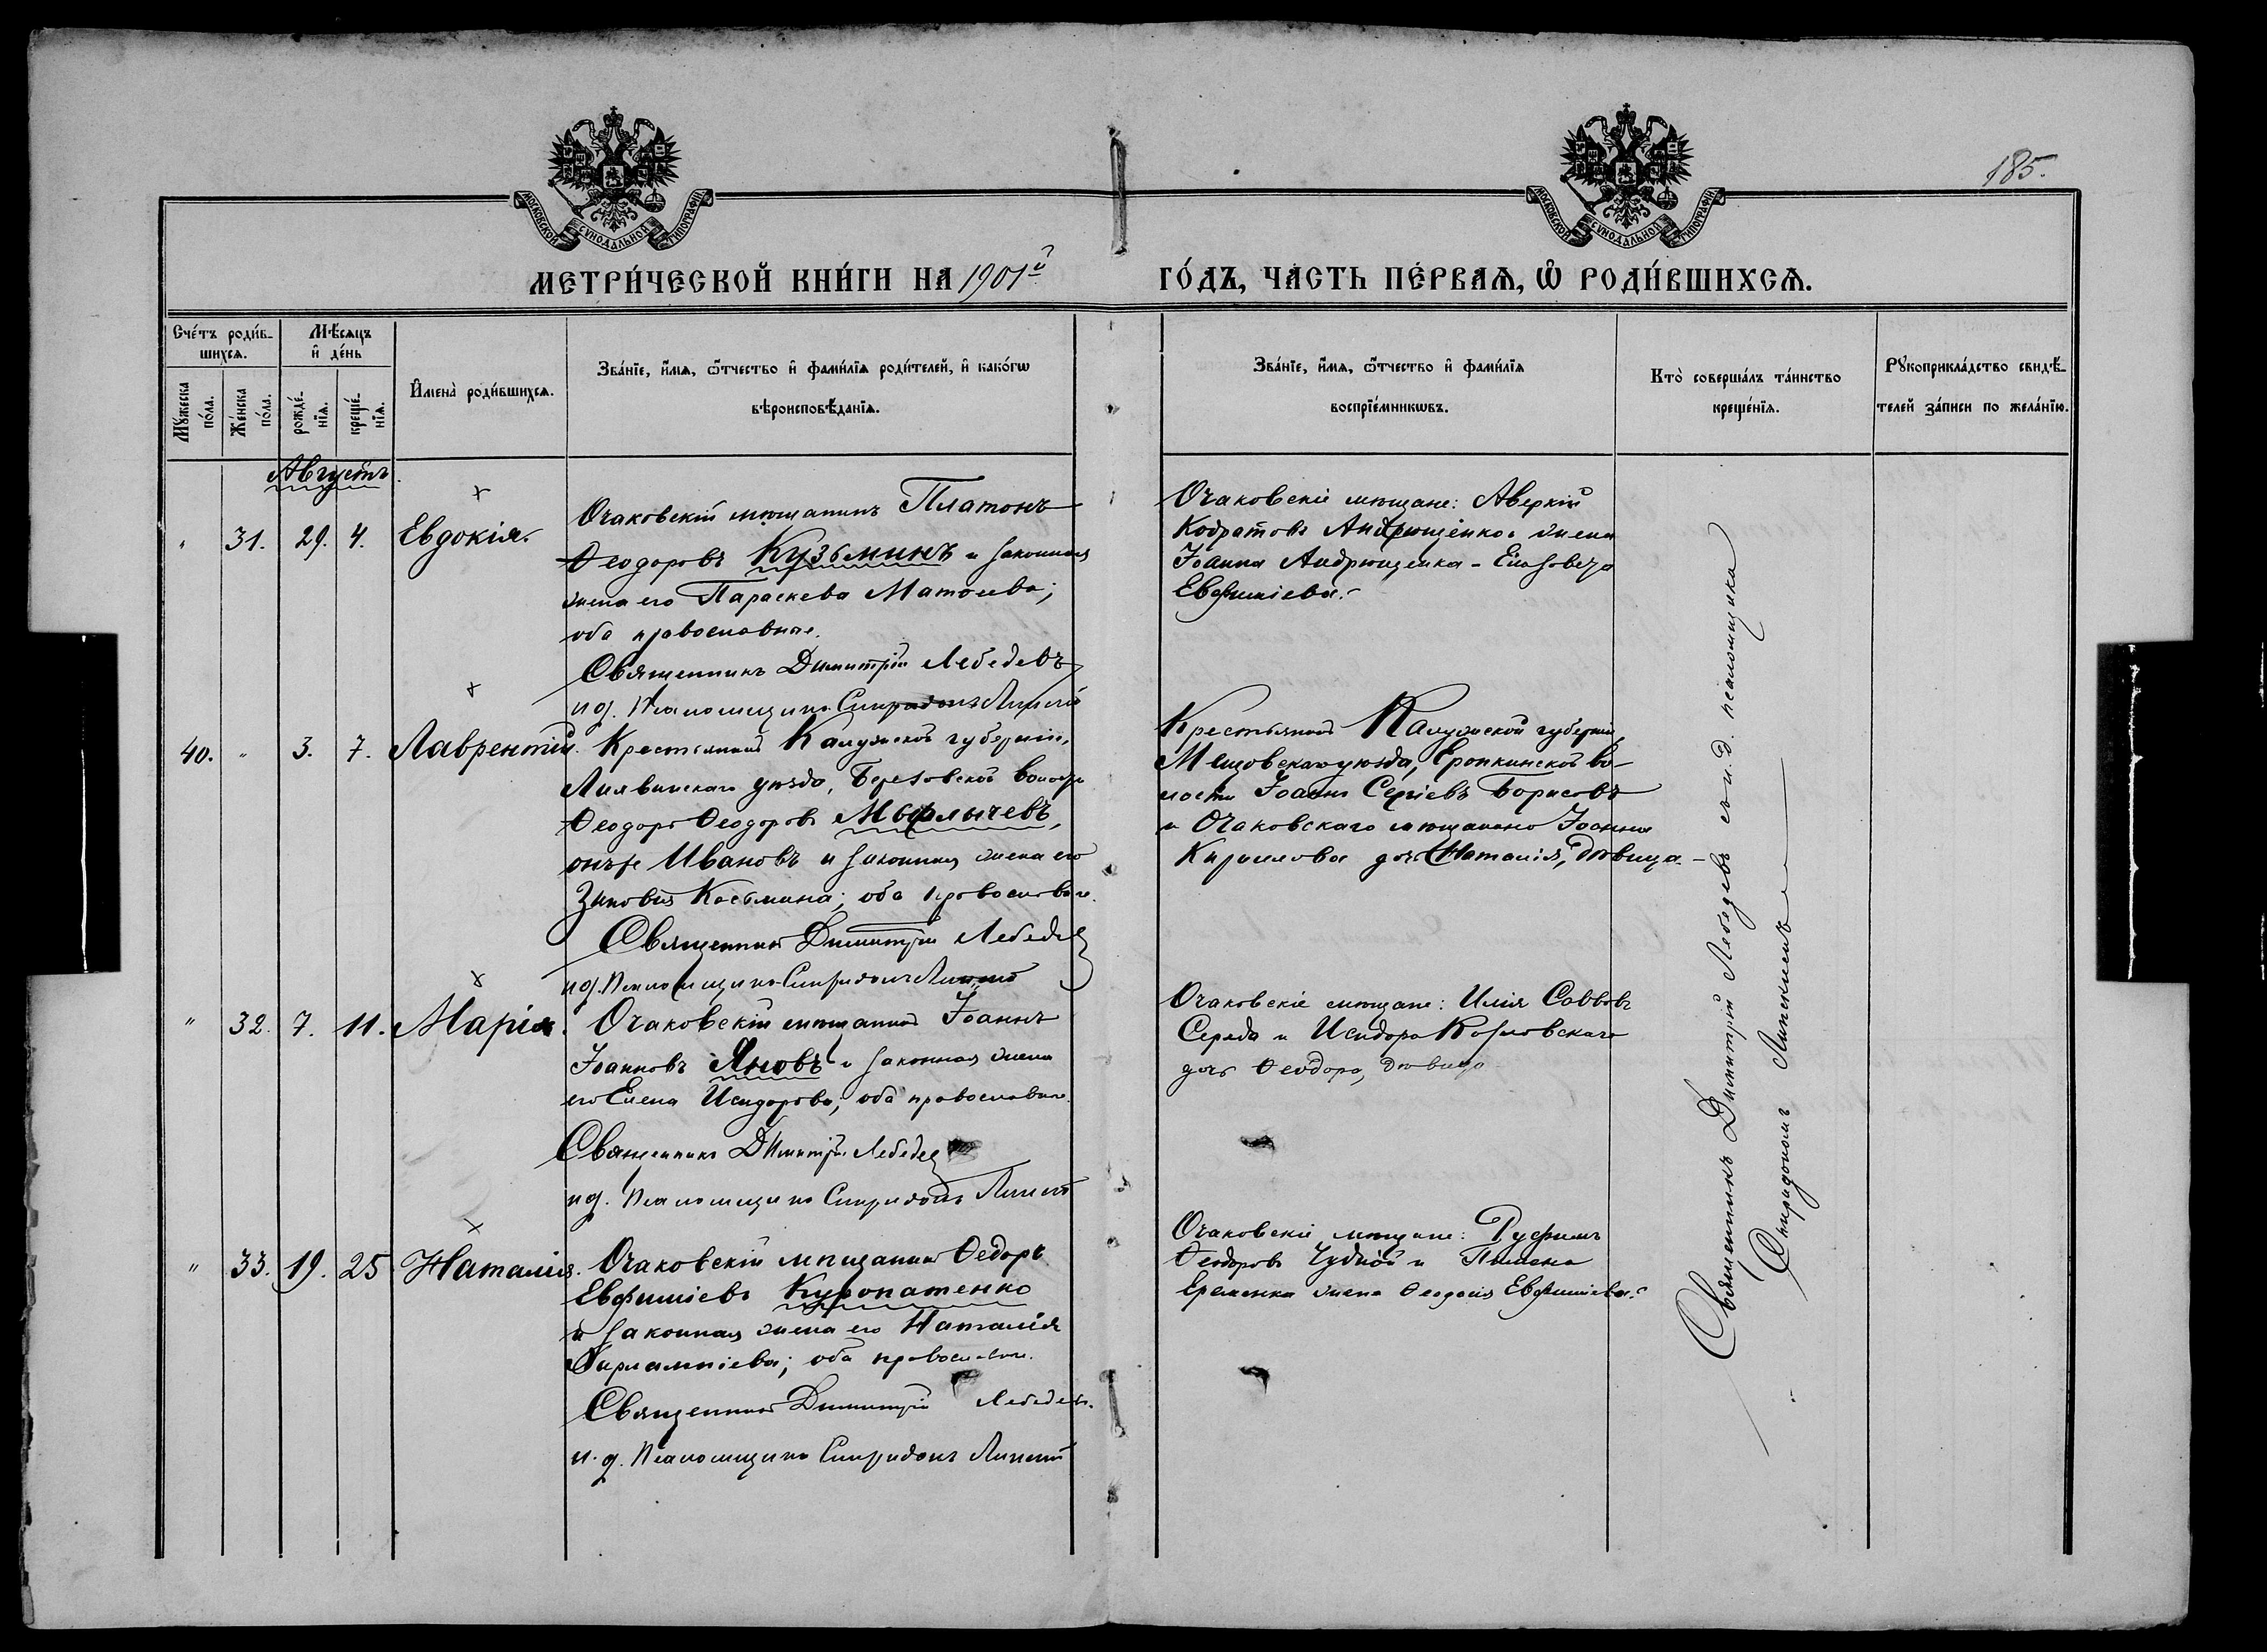 185.
МОСКОВСКОЙ СУНОДАЛЬНОЙ ТИПОГРАФІИ
МОСКОВСКОЙ СУНОДАЛЬНОЙ ТИПОГРАФІИ
МЕТРИ́ЧЕСКОЙ КНИ́ГИ НА 1901й ГО́ДЪ, ЧА́СТЬ ПЕ́РВАѦ, Ѡ҆ РОДИ́ВШИХСѦ.
Сче́тъ роди́в-
шихсѧ.
Мꙋжеска
по́ла.
Же́нска
по́ла.
Мѣ́сѧцъ
и҆ де́нь
рожде́-
нїѧ.
креще́-
нїѧ.
И҆мена̀ роди́вшихсѧ.
Зва́нїе, и҆́мѧ, ѻ҆́тчество и҆ фами́лїѧ роди́телей, и҆ како́гѡ
вѣроисповѣ́данїѧ.
Зва́нїе, и҆́мѧ, ѻ҆́тчество и҆ фами́лїѧ
воспрїе́мникѡвъ.
Кто̀ соверша́лъ та́инство
креще́нїѧ.
Рꙋкоприкла́дство свидѣ́-
телей за́писи по жела́нїю.
Августъ.
" 31. 29. 4. Евдокія.
Очаковскій мѣщанинъ Платонъ
Ѳеодоровъ Кузьминъ и законная
жена его Параскева Матѳеева;
оба православные.
Священникъ Димитрій Лебедевъ
и д. Псаломщика Спиридонъ
Очаковскіе мѣщане: Аверкій
Кодратовъ Андрющенко и жена
Іоанна Андрющенка - Елизавета
Евфиміева.
40. " 3. 7. Лаврентій.
Крестьянинъ Калужской губерніи,
Лихвинскаго уѣзда, Березовской волости
Ѳеодоръ Ѳеодоровъ
онъ же Ивановъ и законная жена его
Зиновія Косьмина; оба православные.
Священникъ Димитрій Лебедевъ
и д. Псаломщика Спиридонъ
Крестьянинъ Калужской губерніи,
Мещовскаго уѣзда, Еропкинской во-
лости Іоаннъ Сергіевъ Борисовъ
и Очаковскаго мѣщанина Іоанна
Кирилова дочь Наталія, дѣвица.
" 32. 7. 11. Марія.
Очаковскій мѣщанинъ Іоаннъ
Іоанновъ Яновъ и законная жена
его Елена Исидорова; оба православные.
Священникъ Димитрій Лебедевъ
и д. Псаломщика Спиридонъ
Очаковскіе мѣщане: Илія Саввовъ
Середа и Исидора Козловскаго
дочь Ѳеодора, дѣвица
" 33. 19. 25 Наталія.
Очаковскій мѣщанинъ Ѳедоръ
Евфиміевъ Куропатенко
и законная жена его Наталія
Харлампіева; оба православные.
Священникъ Димитрій Лебедевъ.
и. д. Псаломщика Спиридонъ
Очаковскіе мѣщане: Руфимъ
Ѳеодоровъ Чудной и Пимена
Еременка жена Ѳеодосія Евфиміева.
Священникъ Димитрій Лебедевъ съ и. д. псаломщика
Спиридономъ Липскимъ